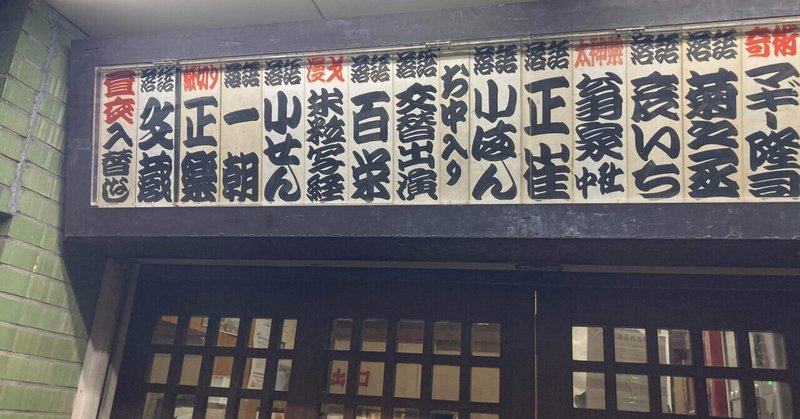 奇術 マギー隆司
落語 菊之丞
落語 彦いち
太神楽 翁家社中
落語 正雀
落語 小はん
お中入り
落語 交替出演
落語 百栄
漫才 米粒写経
落語 小せん
落語 一朝
紙切り 正楽
落語 文蔵
昼夜入替なし
出口